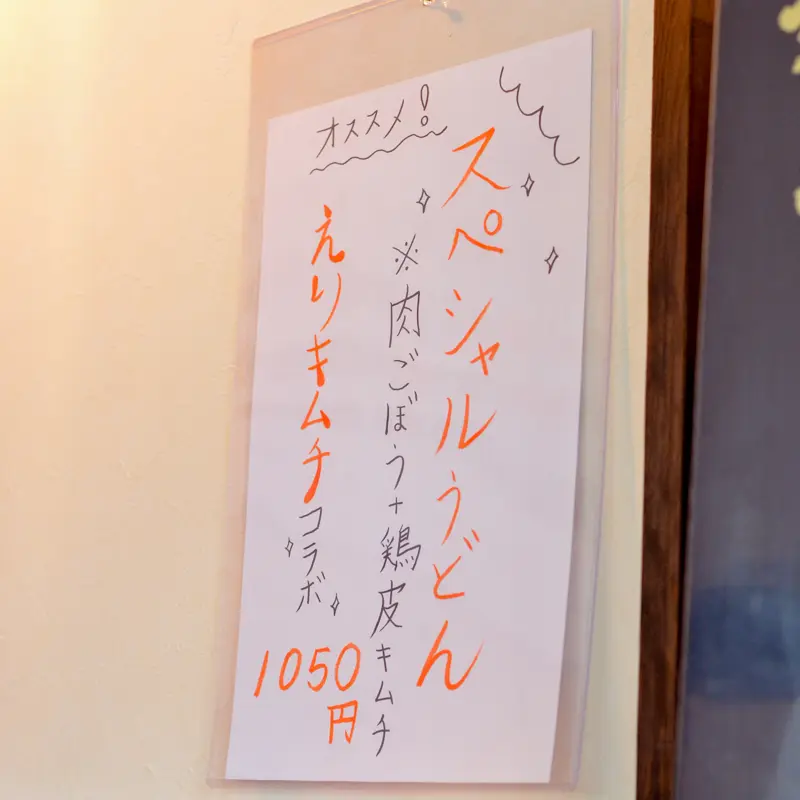 スペシャルうどん
※肉ごぼう+鶏皮キムチ
オススメ!
えりキムチコラボ
1050
円